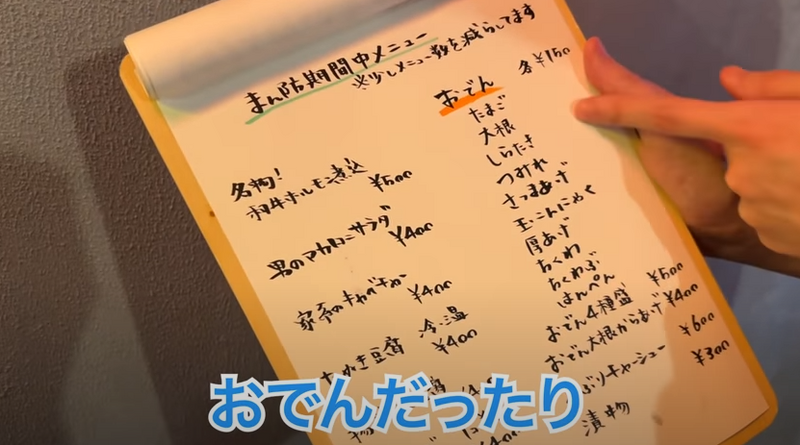 まん防期間中メニュー
※少しメニュー数を減らしてます
名物!
和牛ホルモン煮込
¥500
男のマカロニサラダ
¥400
¥400
豆腐 冷・温
¥400
おでん 各¥150
たまご
大根
しらたき
つみれ
さつまあげ
玉こんにゃく
厚あげ
ちくわ
ちくわぶ
はんぺん
おでん4種盛 ¥500
おでん大根からあげ ¥400
ぶりチャーシュー ¥600
漬物 ¥300
おでんだったり